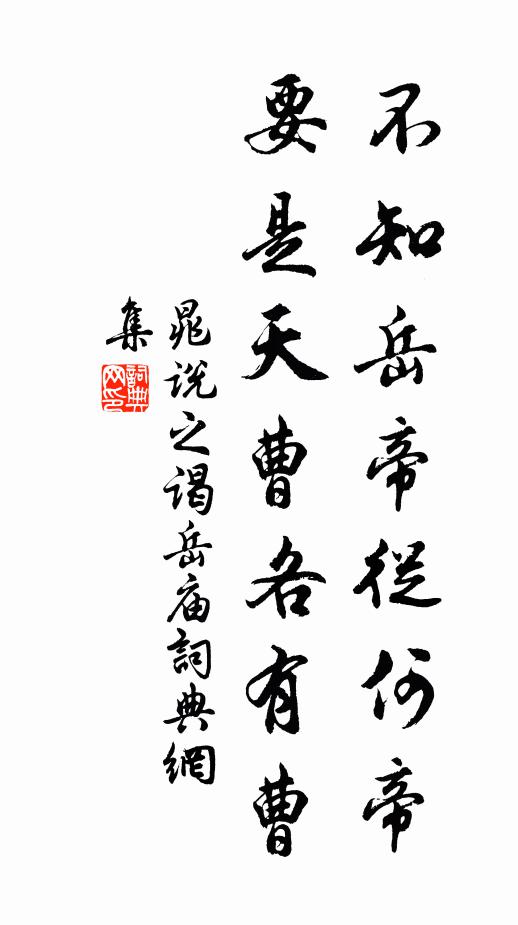 不知岳帝從何帝
要是天曹各有曹
晁说之谒岳庙詞典網
集
詞典网印